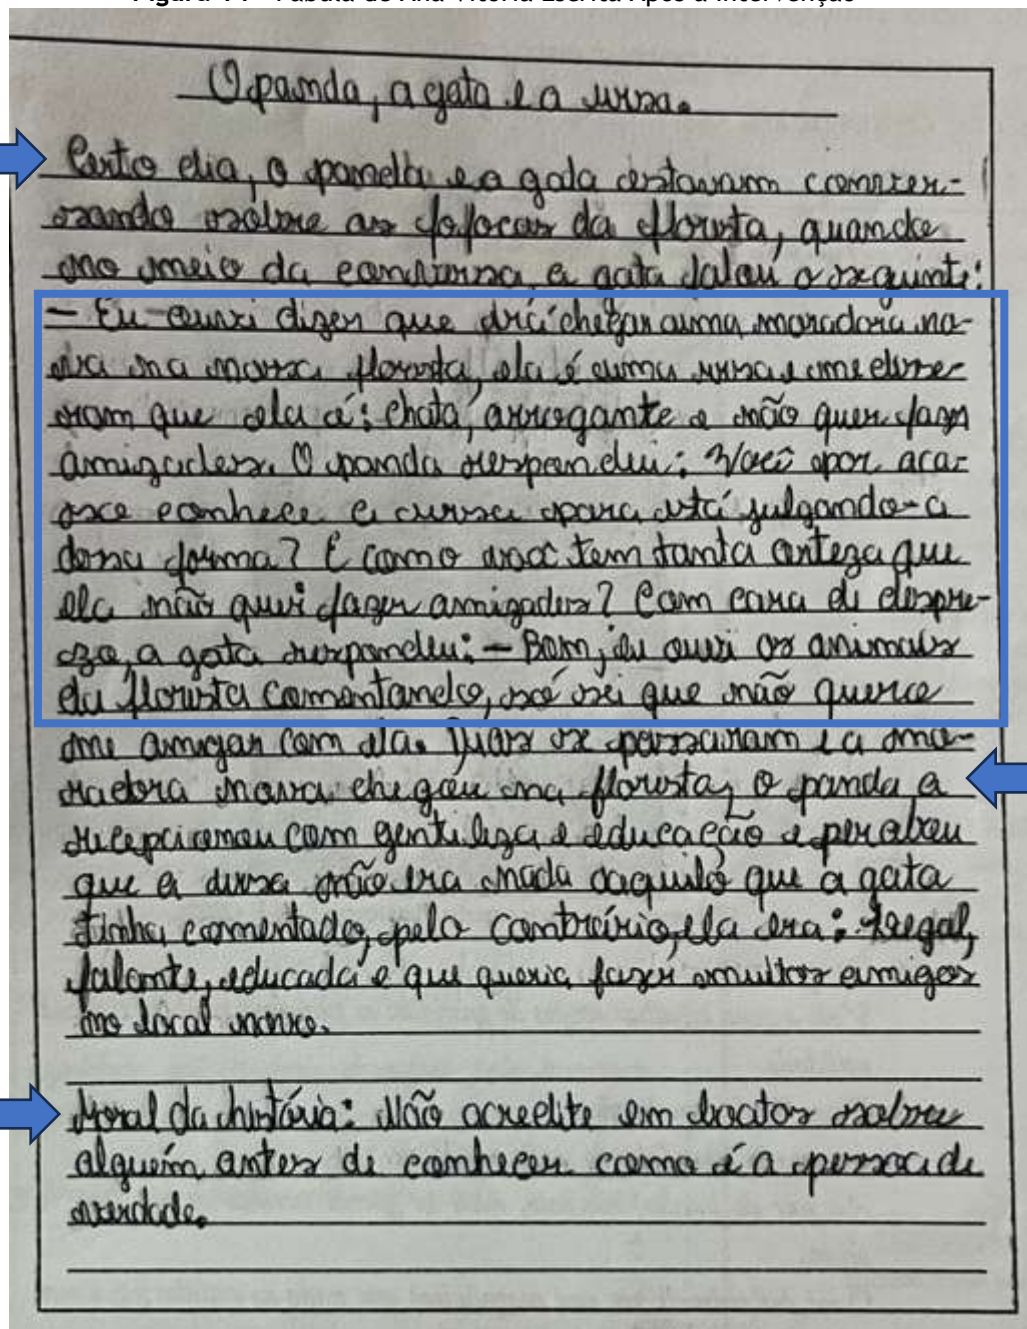 Figura 14 - Fábula de Ana Vitória Escrita Após a Intervenção
O panda, a gata e a ursa.
Certo dia, o panda e a gata estavam conver-
sando sobre as fofocas da floresta, quando
no meio da conversa, a gata falou o seguinte:
- Eu ouvi dizer que irá chegar uma moradora no-
va na nossa floresta, ela é uma ursa e me disse-
ram que ela é: chata, arrogante e não quer fazer
amizades. O panda respondeu: Você por aca-
so conhece a ursa para está julgando-a
dessa forma? E como você tem tanta certeza que
ela não quer fazer amizades? Com cara de despre-
zo, a gata respondeu: - Bom, eu ouvi os animais
da floresta comentando, só sei que não quero
me amigar com ela. Dias se passaram e a mo-
radora nova chegou na floresta, o panda a
recepcionou com gentileza e educação e percebeu
que a ursa não era nada daquilo que a gata
tinha comentado, pelo contrário, ela era: legal,
falante, educada e que queria fazer muitos amigos
no local novo.
Moral da história: Não acredite em boatos sobre
alguém antes de conhecer como é a pessoa de
verdade.